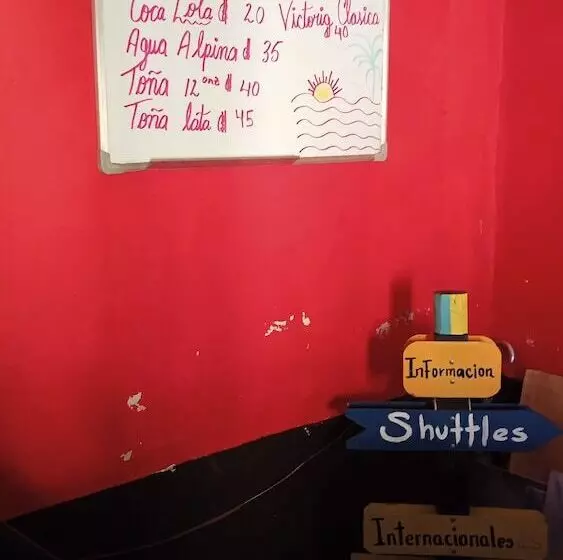 Coca Lola ₡ 20 Victoria Clasica
₡ 40
Agua Alpina ₡ 35
Toña 12 onz ₡ 40
Toña lata ₡ 45
InFormacion
Shuttles
Internacionales